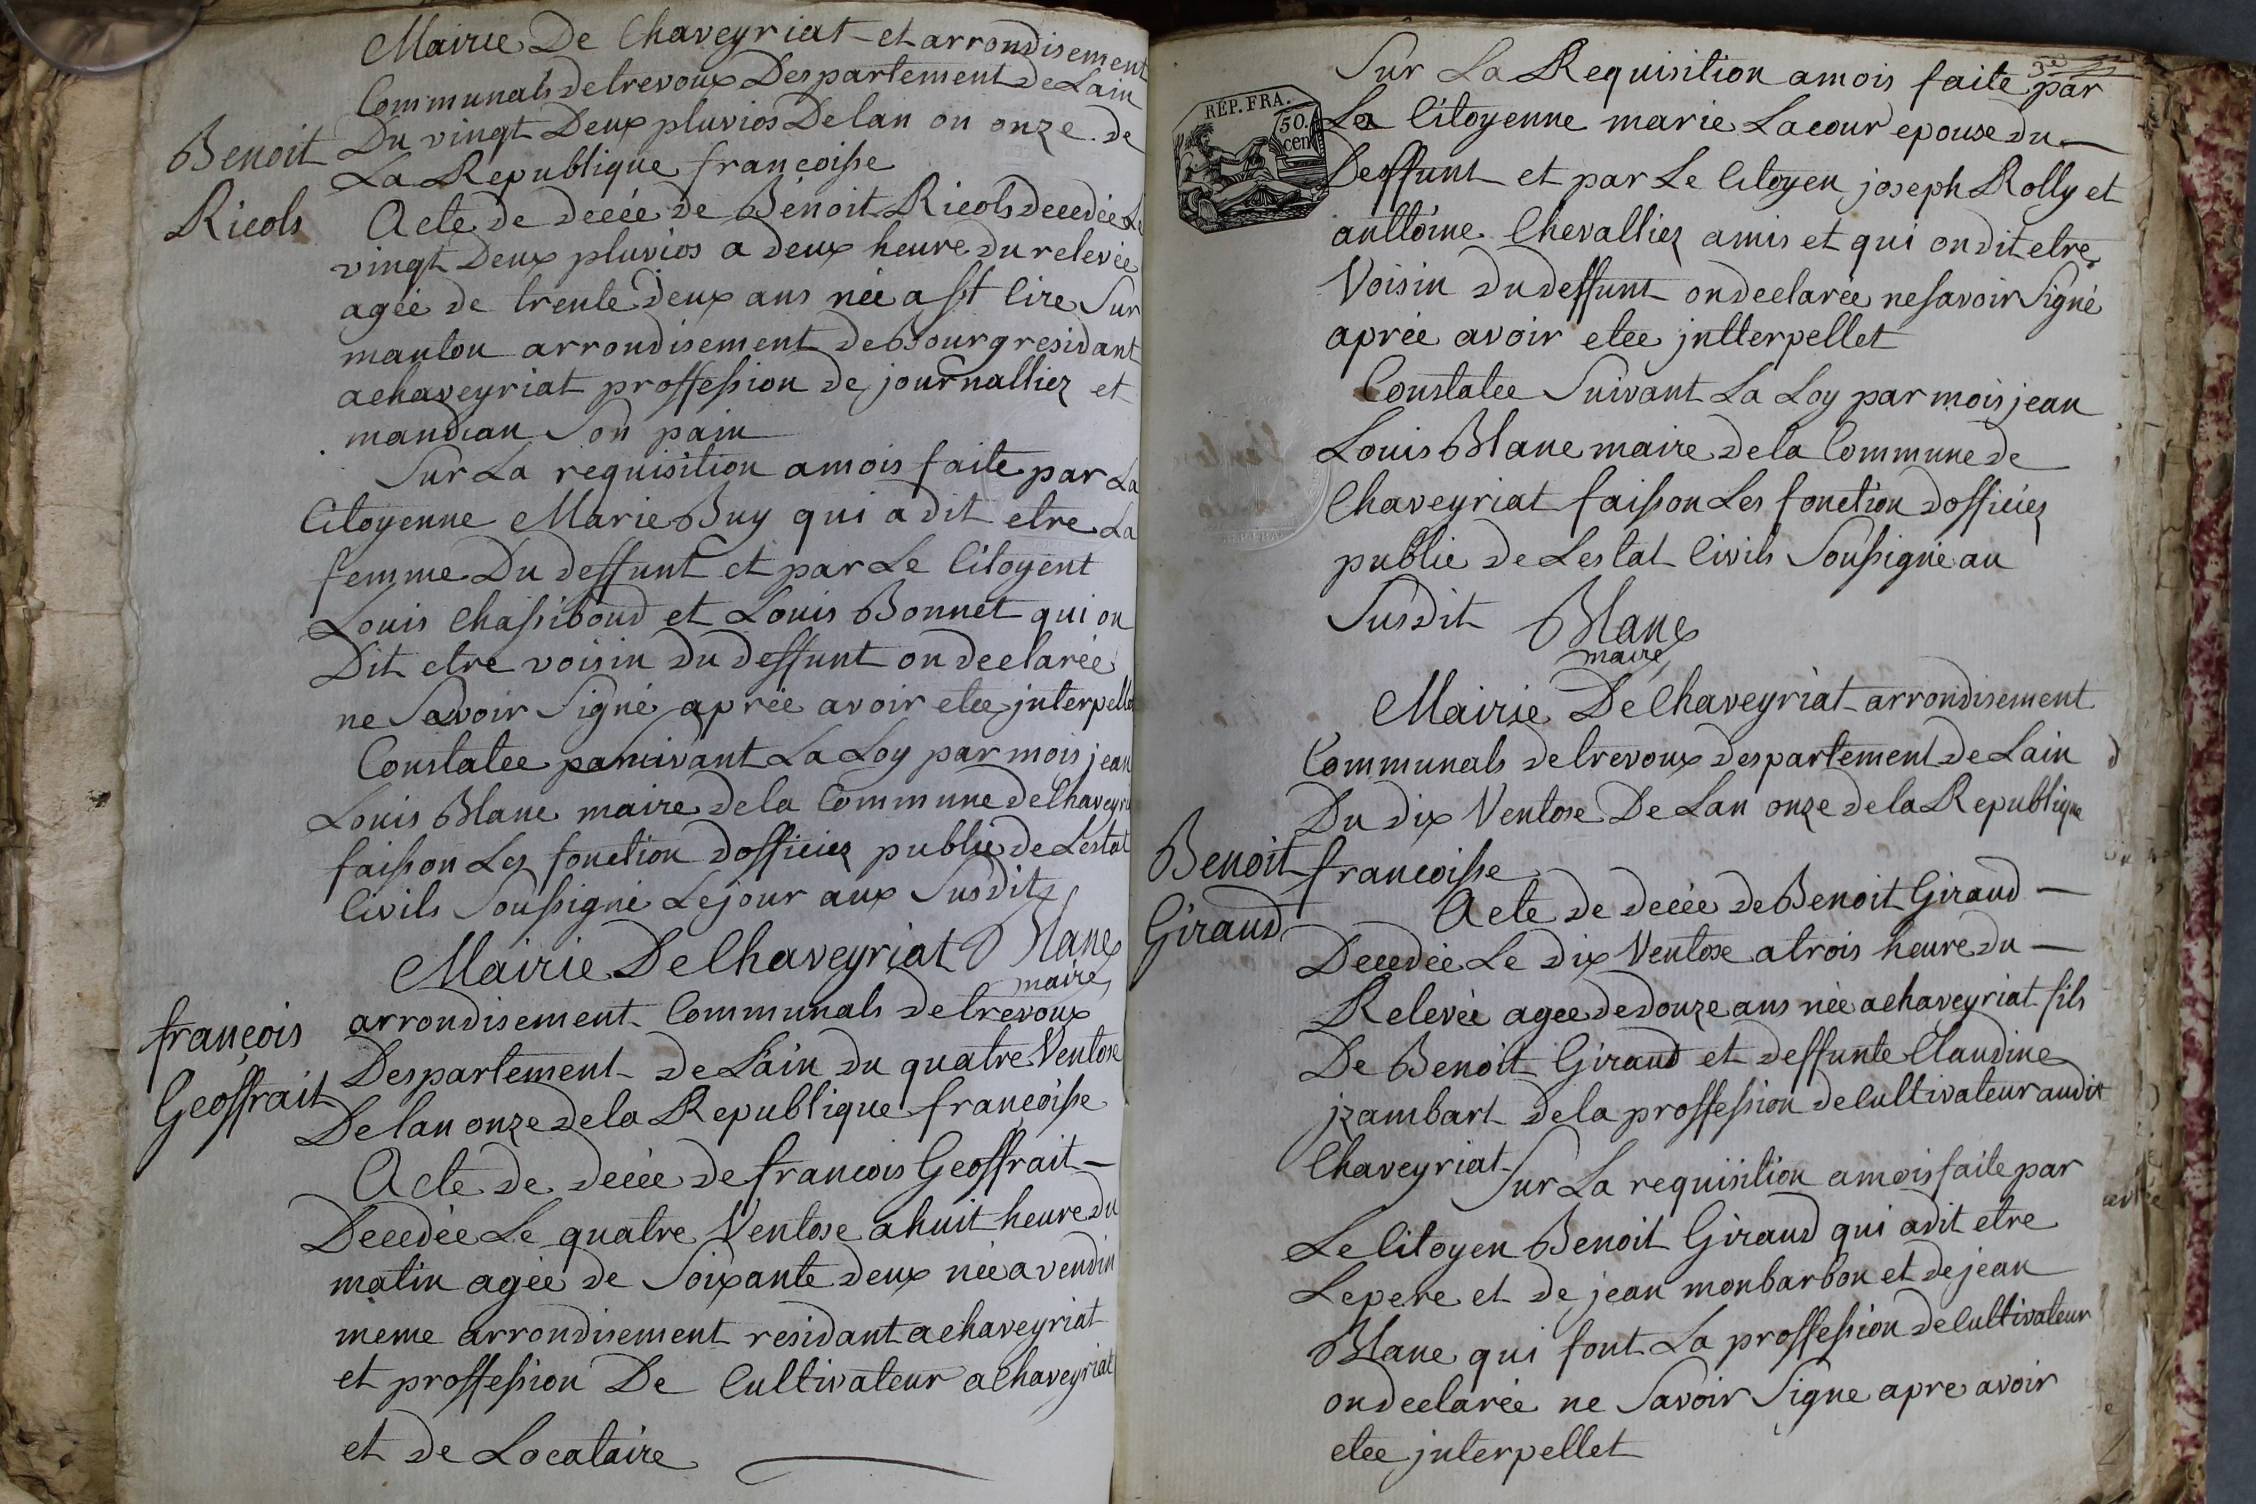 Mairie De Chaveyriat et arrondisement
Communals detrevoux Despartement De Lain
Du vingt Deux pluvios Delan on onze de
La Republique francoisse
Benoit
Ricols
Acte de deceé de Bénoit Ricols decedée Le
vingt Deux pluvios a deux heure du relevée
agée de trente deux ans née a st Cire Sur
manton arrondisement de Bourg residant
achaveyriat proffession de journallier et
mandian Son pain
Sur La requisition amois faite par La
Citoyenne Marie Buy qui a dit etre La
femme Du deffunt et par Le Citoyent
Louis Chassiboud et Louis Bonnet qui on
Dit etre voisin du deffunt on declarée
ne Savoir Signé aprée avoir etee jnterpellet
Constatee La Loy par mois jean
Louis Blanc maire de la Commune de Chaveyri
faisson Les fonction dofficier public de Lestat
Civils Soussigné Lejour aux Susdit
Blanc
maire
Mairie De Chaveyriat
arrondisement Communals de trevoux
Despartement de Lain du quatre Ventose
De lan onze de la Republique francoisse
françois
Geoffrait
Acte de deceé de francois Geoffrait
Decedée Le quatre Ventose a huit heure du
matin agée de Soixante deux née a vendin
meme arrondisement residant a chaveyriat
et proffession De Cultivateur a Chaveyriat
et de Locataire
3e
Sur La Requisition amois faite par
REP. FRA.
50.
cen
La Citoyenne marie Lacour epouse du
Deffunt et par Le Citoyen joseph Rolly et
anttoine Chevallier amis et qui on dit etre
Voisin du deffunt on declarée ne savoir Signé
aprée avoir etee jntterpellet
Constatee Suivant La Loy par mois jean
Louis Blanc maire de la Commune de
Chaveyriat faisson Les fonction dofficier
public de Lestat Civils Soussigné au
Susdit
Blanc
maire
Mairie De Chaveyriat arrondisement
Communals detrevoux despartement de Lain
Du dix Ventose De Lan onze de la Republique
francoisse
Benoit
Giraud
Acte de deceé de Benoit Giraud
Decedée Le dix Ventose atrois heure du
Relevée agee de douze ans née a chaveyriat fils
De Benoit Giraud et deffunte Claudine
jzambart de la proffession de Cultivateur audit
Chaveyriat
Sur La requisition amois faite par
Le Citoyen Benoit Giraud qui adit etre
Le pere et de jean monbarbon et de jean
Blanc qui font La proffession de Cultivateur
on declarée ne Savoir Signe apre avoir
etee jnterpellet